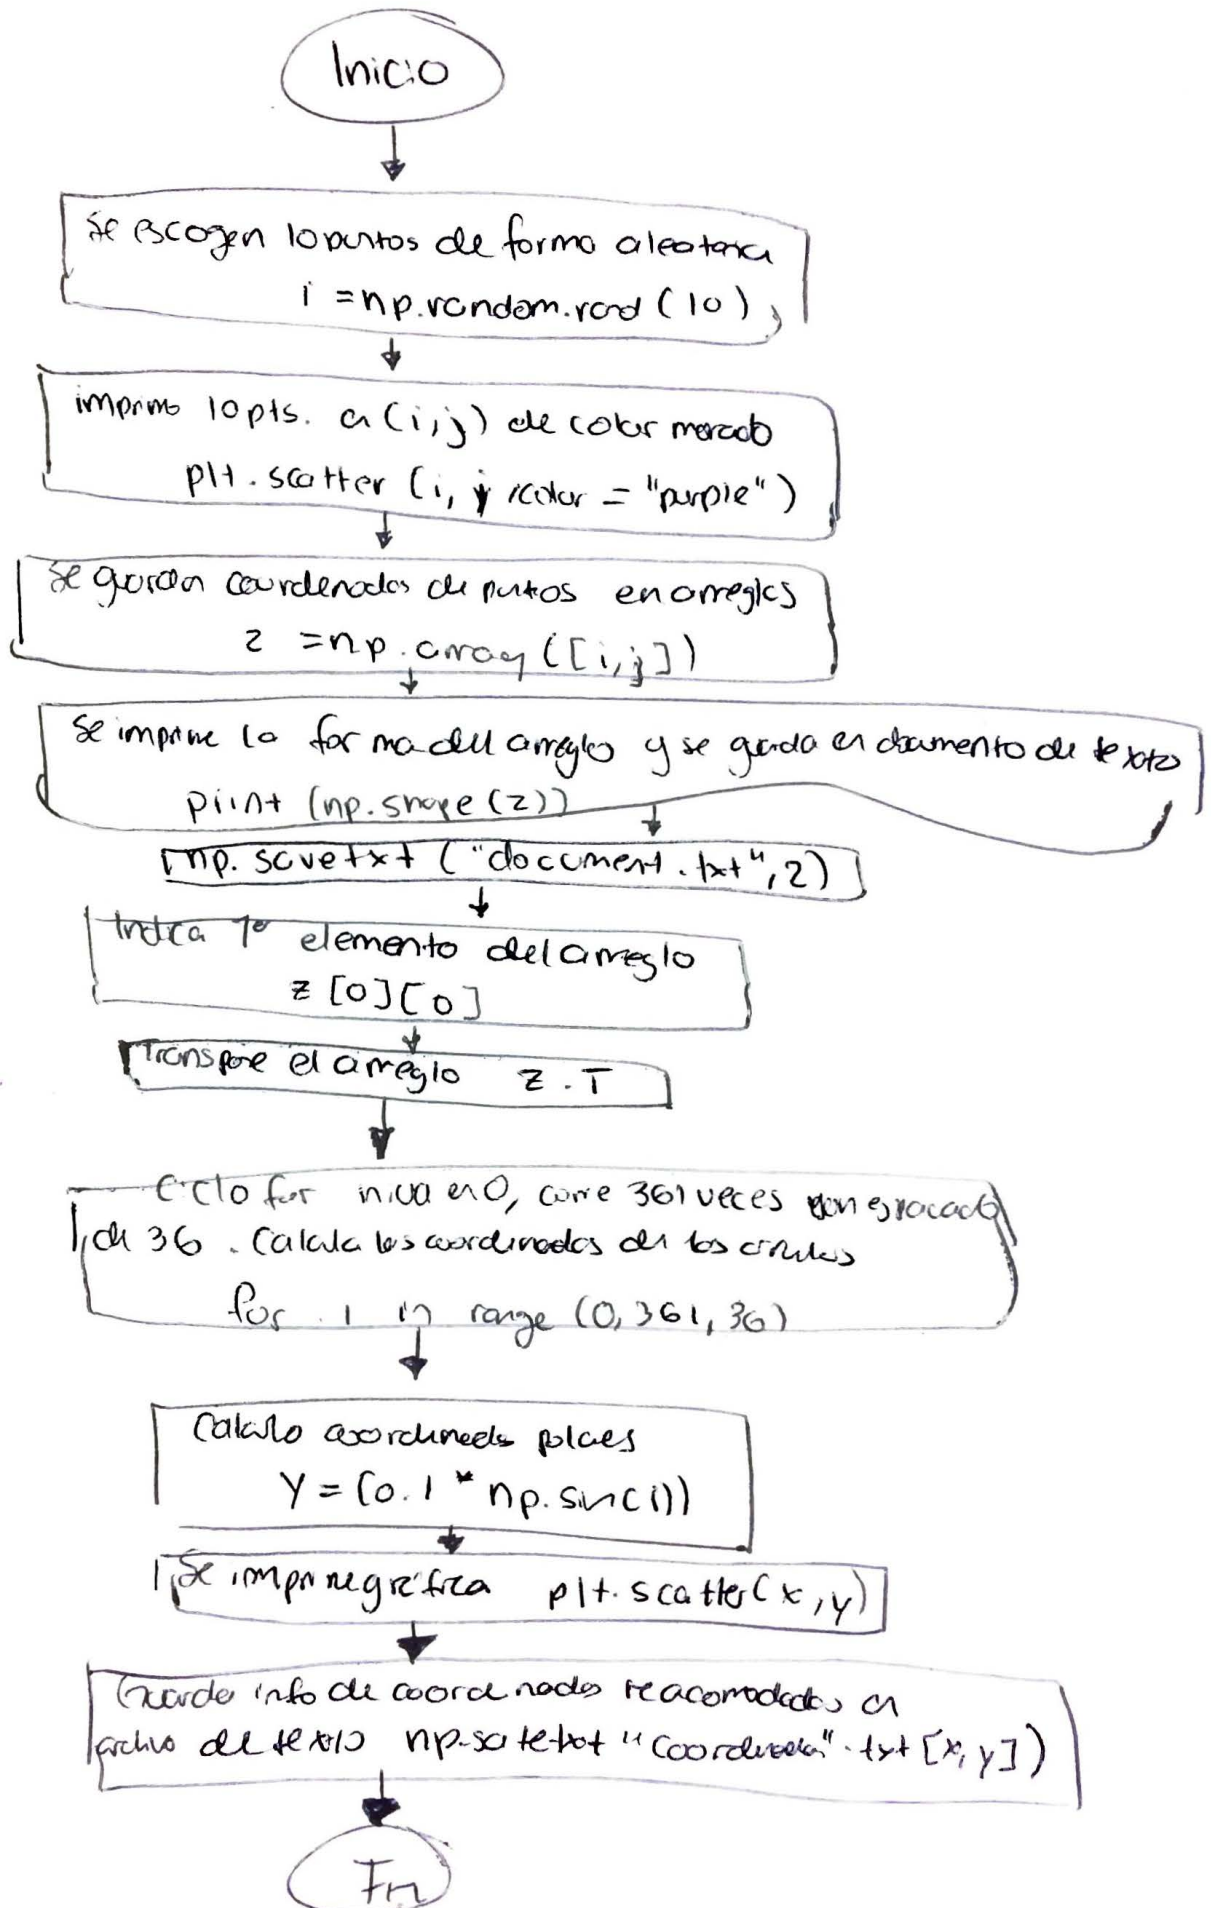 Inicio
Se escogen 10 puntos de forma aleatoria
i = np.random.rand (10)
imprimo 10 pts. a (i,j) de color morado
plt.scatter (i, j, color = "purple")
Se guardan coordenadas de puntos en arreglos
z = np.array ([i,j])
Se imprime la forma del arreglo y se guarda en documento de texto
print (np.shape (z))
np.savetxt ("document.txt", z)
Indica 1º elemento del arreglo
z [0][0]
Transpone el arreglo z.T
Ciclo for inicia en 0, corre 361 veces con espaciado
de 36. Calcula las coordenadas de los círculos
for i in range (0, 361, 36)
Calculo coordenadas polares
Y = (0.1 * np.sin(i))
Se imprime gráfica plt.scatter(x,y)
Guarda info de coordenadas reacomodadas en
archivo de texto "coordenadas".txt [x,y])
Fin